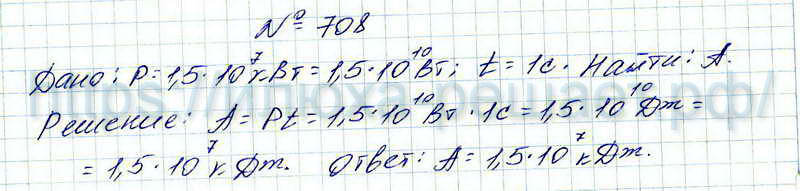 № 708
Дано: P = 1,5·10⁷ кВт = 1,5·10¹⁰ Вт; t = 1с. Найти: A.
Решение: A = Pt = 1,5·10¹⁰ Вт · 1с = 1,5·10¹⁰ Дж =
= 1,5·10⁷ кДж. Ответ: A = 1,5·10⁷ кДж.